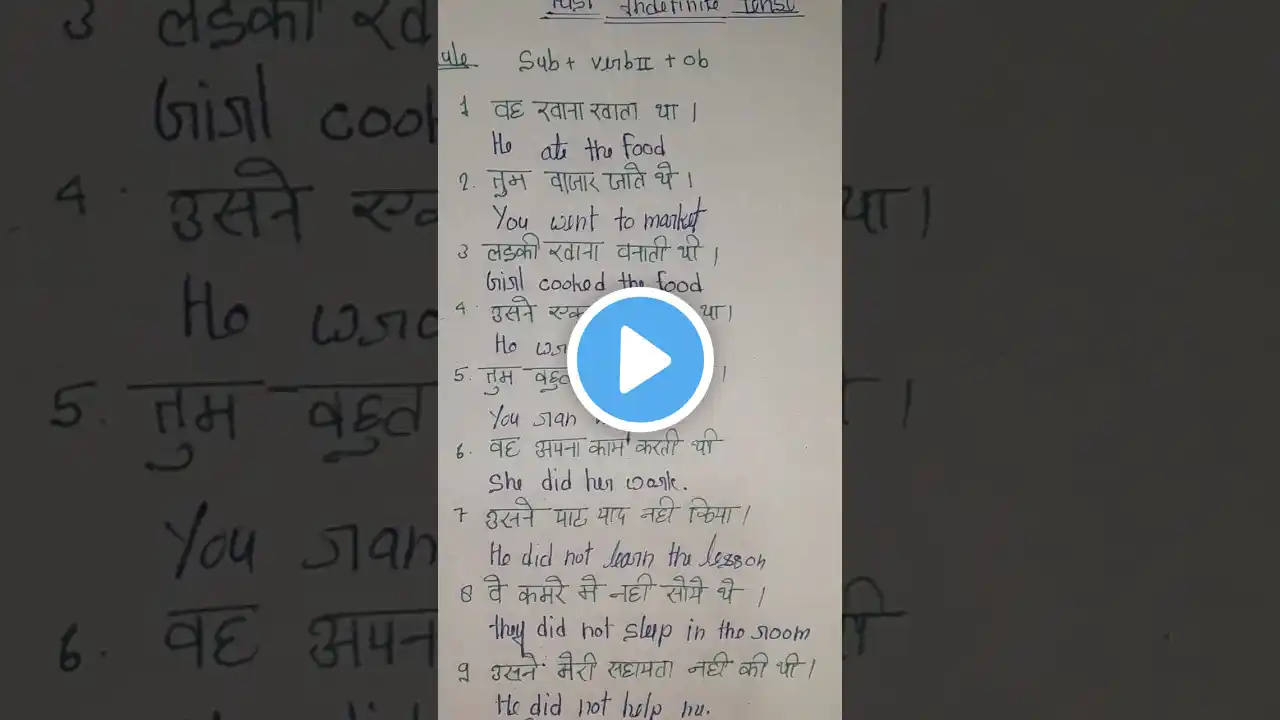 Past Indefinite Tense
Rule Sub + verbII + ob
1 वह खाना खाता था ।
He ate the food
2. तुम बाजार जाते थे ।
You went to market
3 लडकी खाना बनाती थी ।
Girl cooked the food
4. उसने था ।
He
5. तुम बहुत ।
You ran
6. वह अपना काम करती थी
She did her work.
7 उसने पाठ याद नही किया ।
He did not learn the lesson
8 वे कमरे मे नही सोये थे ।
they did not sleep in the room
9 उसने मेरी सहायता नही की थी ।
He did not help me.